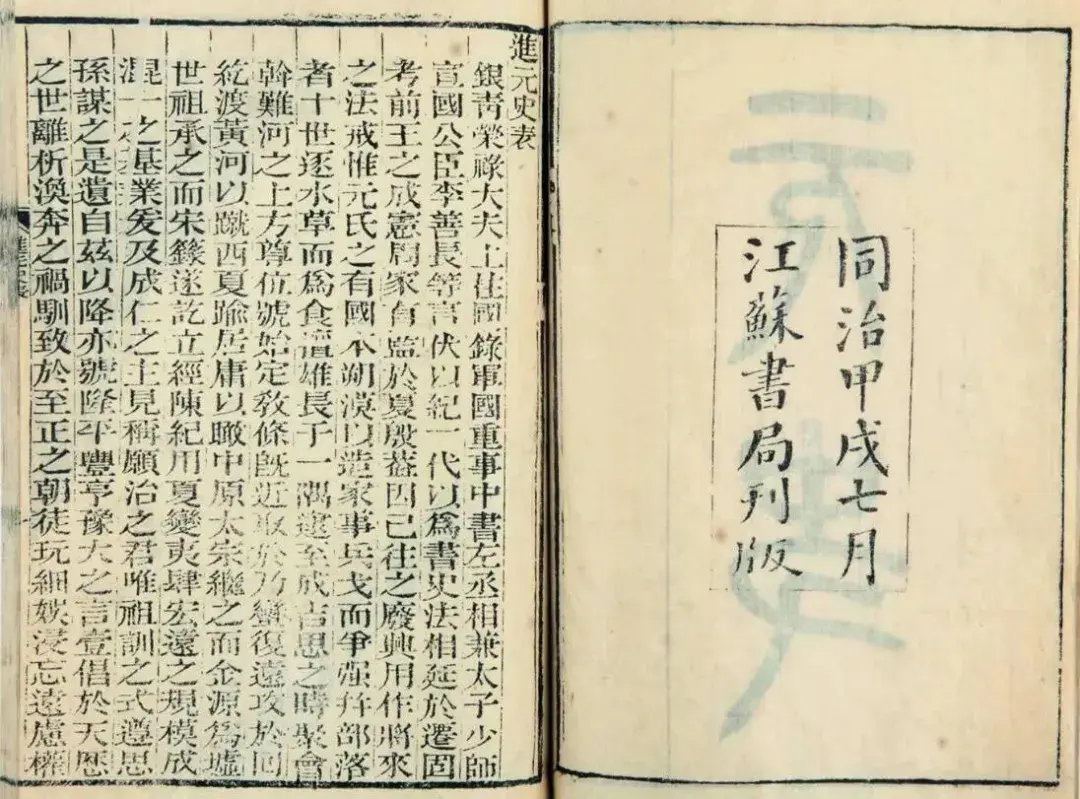 同治甲戌七月
江蘇書局刊版
進元史表
銀青榮祿大夫上柱國錄軍國重事中書左丞相兼太子少師
宣國公臣李善長等言伏以紀一代以爲書史法相延於遷固
考前王之成憲周家有監於夏殷蓋因已往之廢興用作將來
之法戒惟元氏之有國本朔漠以造家事兵戈而爭强幷部落
者十世逐水草而爲食擅雄長于一隅逮至成吉思之時聚會
斡難河之上方尊位號始定敎條旣近取於乃蠻復遠攻於回
紇渡黃河以蹴西夏踰居庸以瞰中原太宗繼之而金源爲墟
世祖承之而宋籙遂訖立經陳紀用夏變夷肆宏遠之規模成
混一之基業爰及成仁之主見稱願治之君唯祖訓之式遵思
孫謀之是遺自茲以降亦號隆平豐亨豫大之言壹倡於天厯
之世離析渙奔之禍馴致於至正之朝徒玩細娛浸忘遠慮權